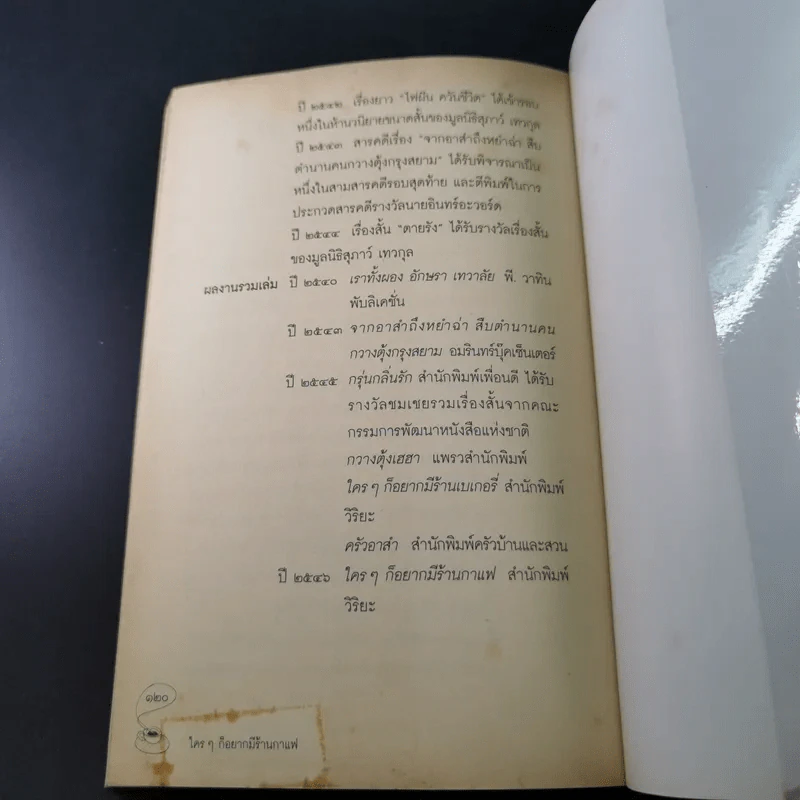 ปี ๒๕๔๒ เรื่องยาว "ไฟฝัน ควันชีวิต" ได้เข้ารอบ
หนึ่งในห้านวนิยายขนาดสั้นของมูลนิธิสุภาว์ เทวกุล
ปี ๒๕๔๓ สารคดีเรื่อง "จากอาสำถึงหยำฉ่า สืบ
ตำนานคนกวางตุ้งกรุงสยาม" ได้รับพิจารณาเป็น
หนึ่งในสามสารคดีรอบสุดท้าย และตีพิมพ์ในการ
ประกวดสารคดีรางวัลนายอินทร์อะวอร์ด
ปี ๒๕๔๔ เรื่องสั้น "ตายรัง" ได้รับรางวัลเรื่องสั้น
ของมูลนิธิสุภาว์ เทวกุล
ผลงานรวมเล่ม ปี ๒๕๔๐ เราทั้งผอง อักษรา เทวาลัย พี. วาทิน
พับลิเคชั่น
ปี ๒๕๔๓ จากอาสำถึงหยำฉ่า สืบตำนานคน
กวางตุ้งกรุงสยาม อมรินทร์บุ๊คเซ็นเตอร์
ปี ๒๕๔๕ กรุ่นกลิ่นรัก สำนักพิมพ์เพื่อนดี ได้รับ
รางวัลชมเชยรวมเรื่องสั้นจากคณะ
กรรมการพัฒนาหนังสือแห่งชาติ
กวางตุ้งเฮฮา แพรวสำนักพิมพ์
ใคร ๆ ก็อยากมีร้านเบเกอรี่ สำนักพิมพ์
วิริยะ
ครัวอาสำ สำนักพิมพ์ครัวบ้านและสวน
ปี ๒๕๔๖ ใคร ๆ ก็อยากมีร้านกาแฟ สำนักพิมพ์
วิริยะ
๑๒๐
ใคร ๆ ก็อยากมีร้านกาแฟ